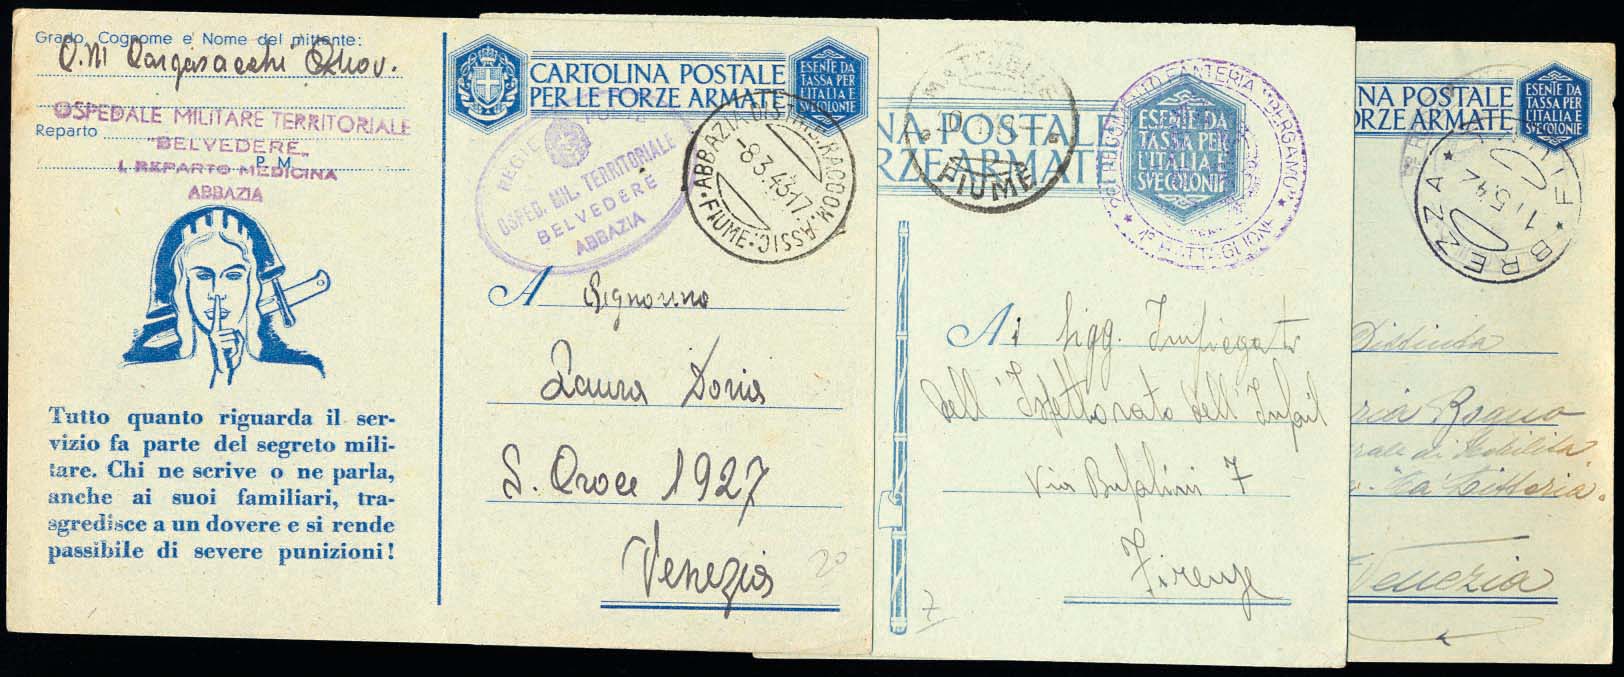 Grado, Cognome e Nome del mittente:
OSPEDALE MILITARE TERRITORIALE
Reparto
"BELVEDERE"
P. M.
I. REPARTO MEDICINA
ABBAZIA
Tutto quanto riguarda il ser-
vizio fa parte del segreto mili-
tare. Chi ne scrive o ne parla,
anche ai suoi familiari, tra-
sgredisce a un dovere e si rende
passibile di severe punizioni!
CARTOLINA POSTALE
PER LE FORZE ARMATE
ESENTE DA
TASSA PER
L'ITALIA E
SVE COLONIE
REGIE POSTE
OSPED. MIL. TERRITORIALE
BELVEDERE
ABBAZIA
ABBAZIA DISTRIB. RACCOM. ASSIC.
-8.3.43.17
FIUME
A Signorina
Laura Doria
S. Croce 1927
Venezia
20
NA POSTALE
RZE ARMATE
FIUME
ESENTE DA
TASSA PER
L'ITALIA E
SVE COLONIE
REGGIMENTO FANTERIA "BERGAMO"
BATTAGLIONE
Ai Sigg. Impiegati
dell'Ispettorato dell'Infail
Via Bufalini 7
Firenze
7
NA POSTALE
ORZE ARMATE
ESENTE DA
TASSA PER
L'ITALIA E
SVE COLONIE
BREZZA
Distinta
Venezia